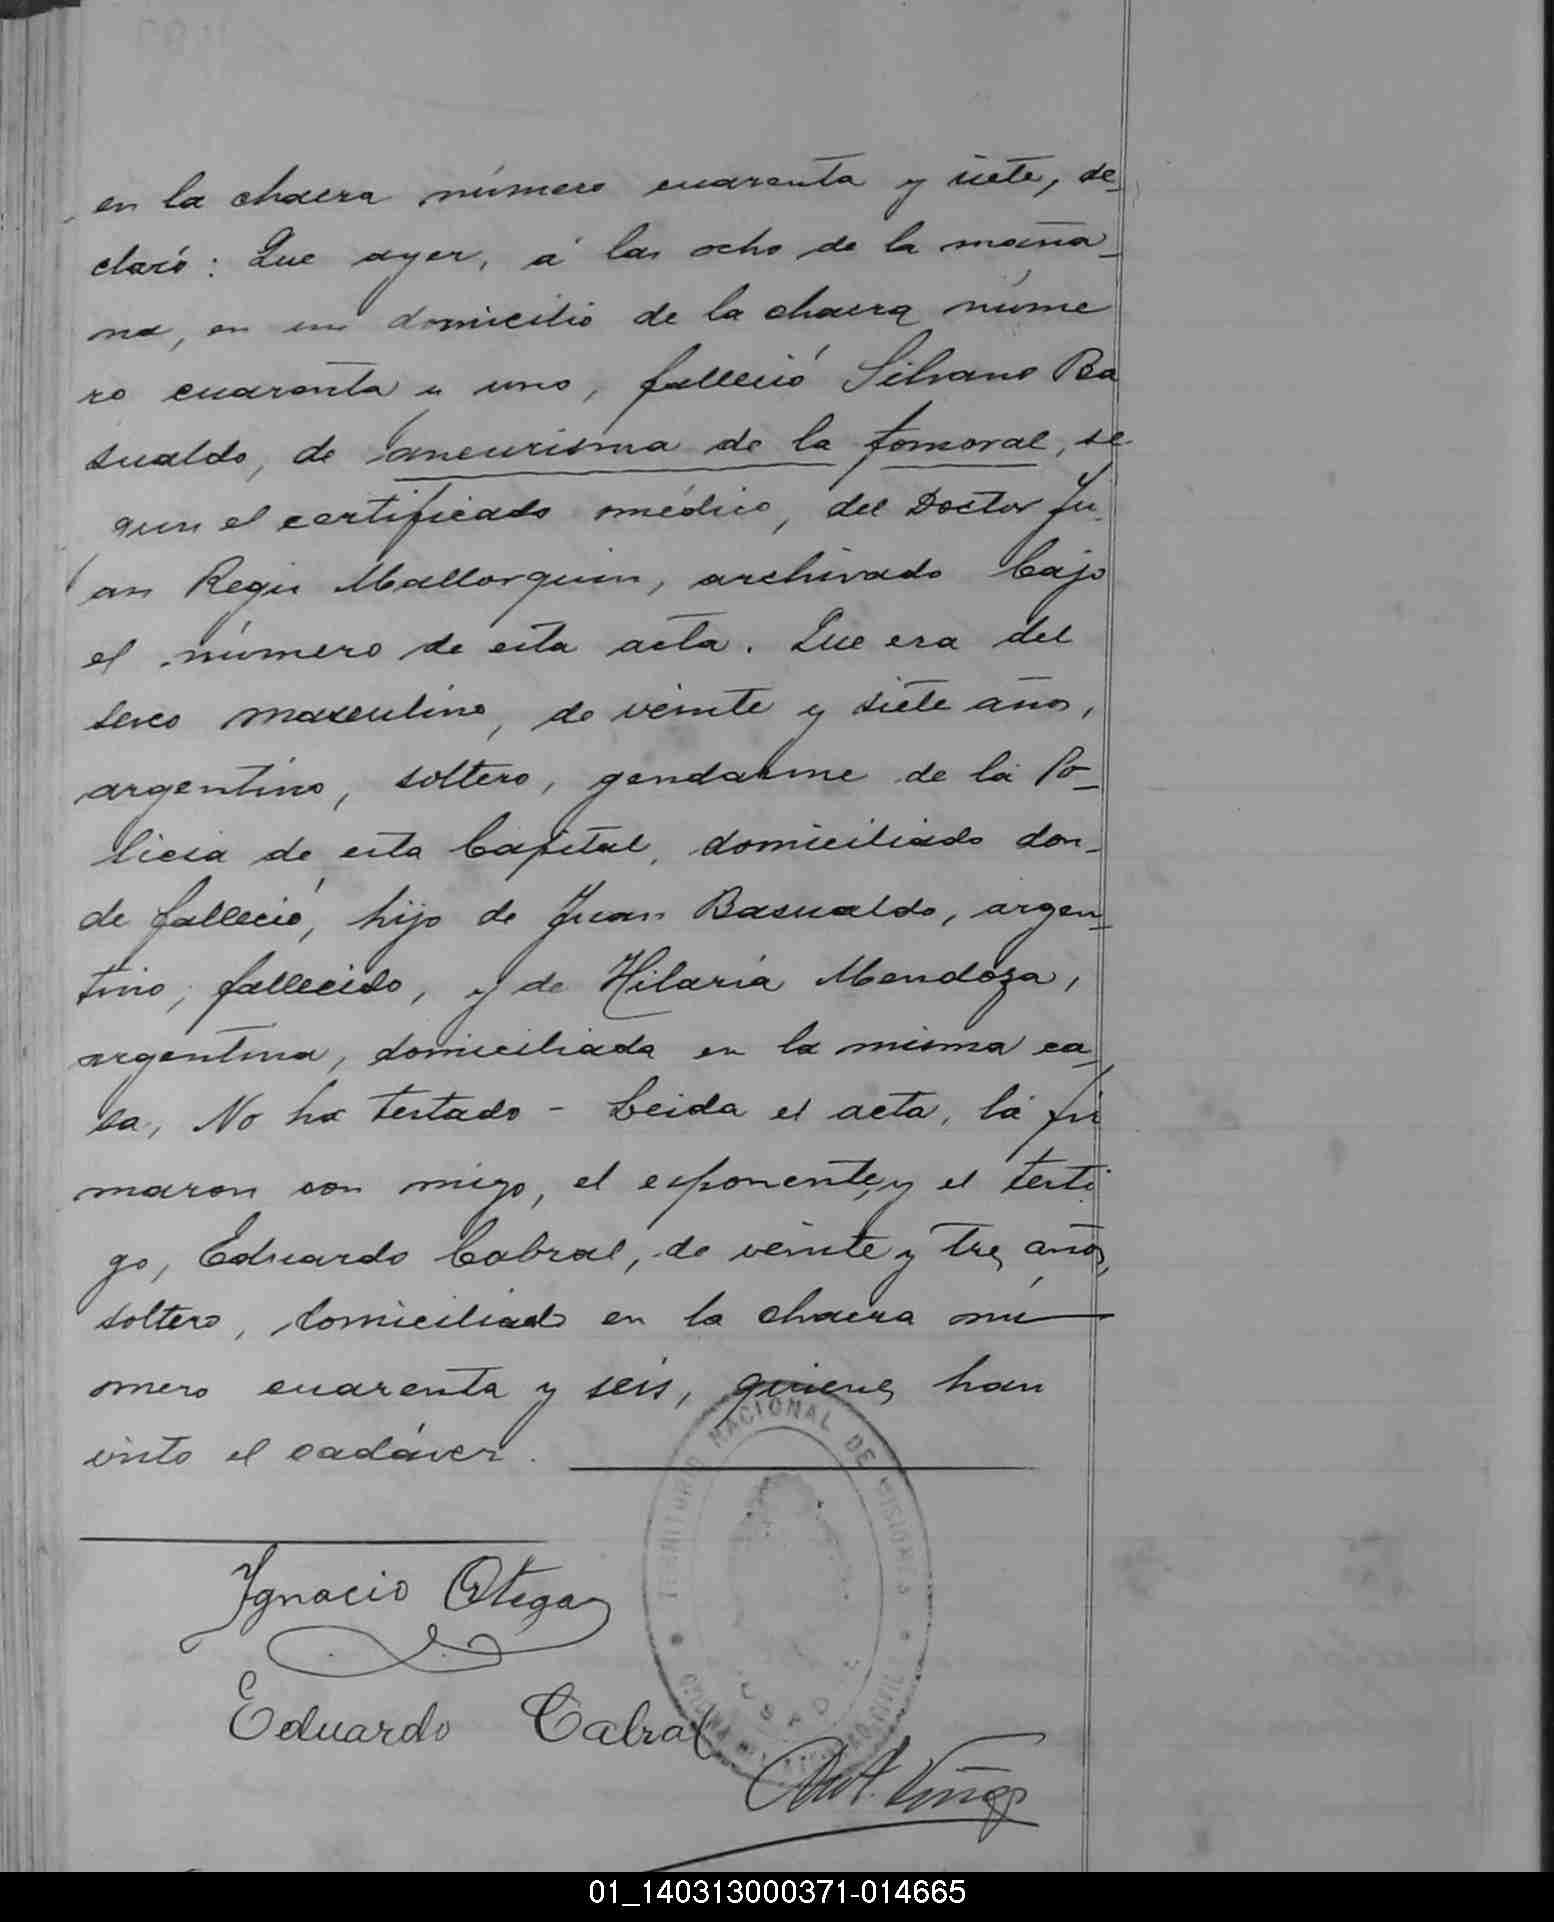 en la chacra número cuarenta y siete, de-
claró: Que ayer, á las ocho de la maña-
na, en su domicilio de la chacra núme
ro cuarenta y uno, falleció Silvano Ba
sualdo, de aneurisma de la femoral, se
gun el certificado médico, del Doctor Ju
an Regis Mallorquin, archivado bajo
el número de esta acta. Que era del
sexo masculino, de veinte y siete años,
argentino, soltero, gendarme de la Po-
licia de esta Capital, domiciliado don-
de falleció, hijo de Juan Basualdo, argen-
tino, fallecido, y de Hilaria Mendoza,
argentina, domiciliada en la misma ca
sa, No ha testado - Leida el acta, la fir
maron con migo, el exponente, y el testi
go, Eduardo Cabral, de veinte y tres años,
soltero, domiciliado en la chacra nú
mero cuarenta y seis, quienes han
visto el cadáver.
TERRITORIO NACIONAL DE MISIONES
Ignacio Ortega
Eduardo Cabral
CIVIL
01_140313000371-014665